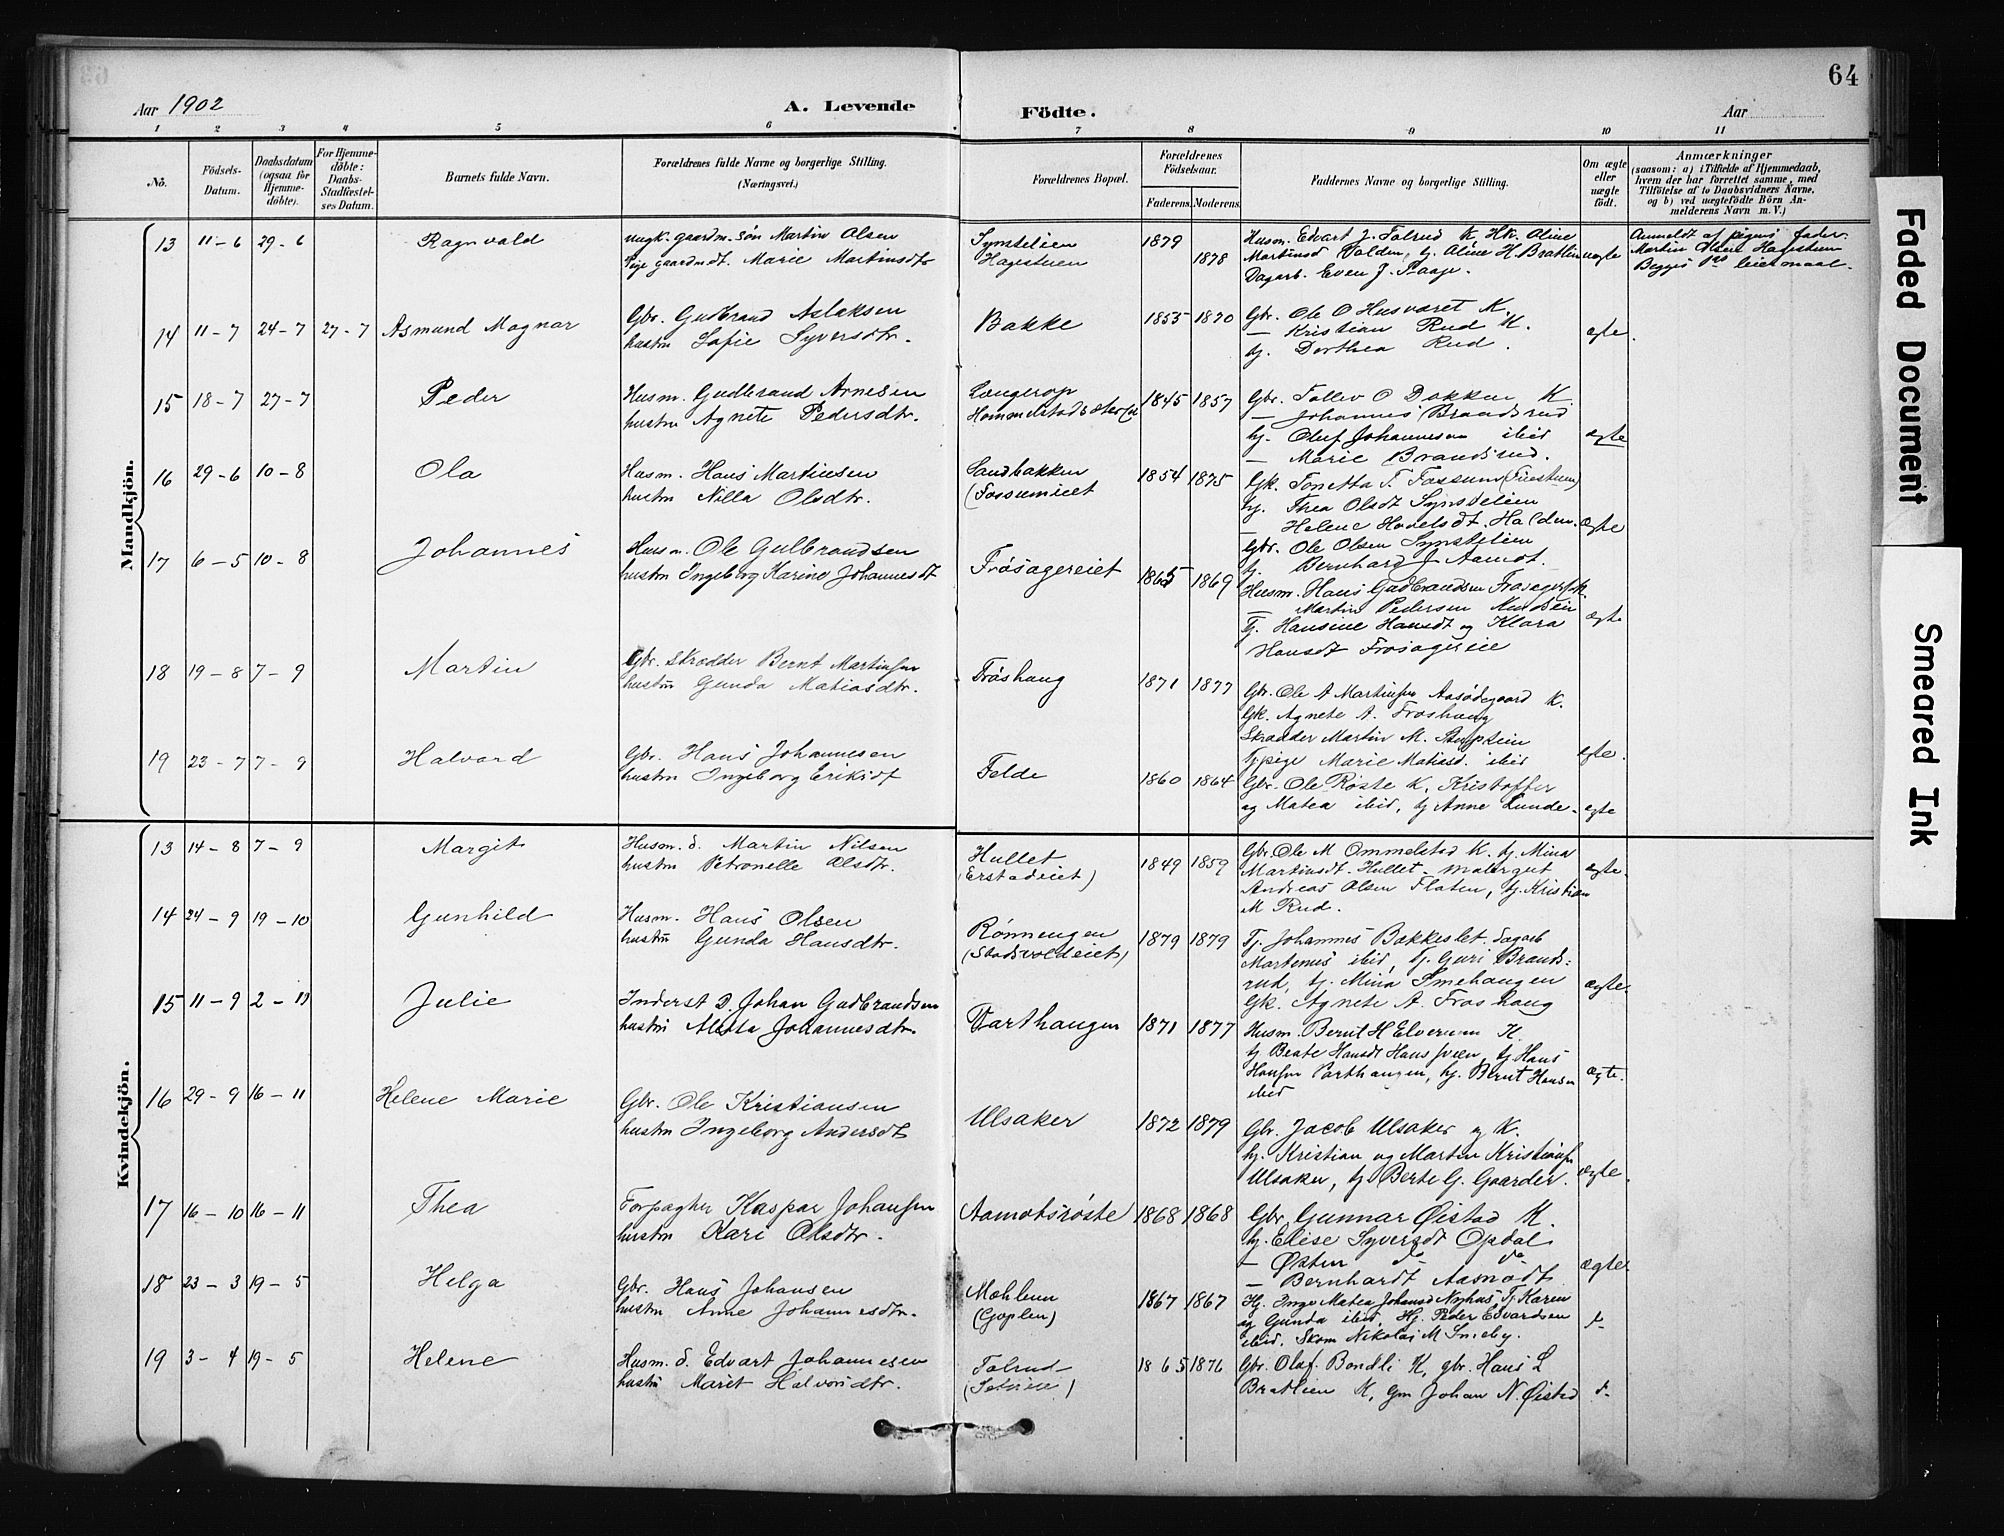 64
Aar 1902
A. Levende
Födte.
Aar
1 2 3 4 5 6 7 8 9 10 11
No.
Födsels-Datum.
Daabsdatum (ogsaa for Hjemme-döbte).
For Hjemme-döbte: Daabs-Stadfæstel-ses Datum.
Barnets fulde Navn.
Forældrenes fulde Navne og borgerlige Stilling.
(Næringsvei.)
Forældrenes Bopæl.
Forældrenes Födselsaar.
Faderens. Moderens.
Faddernes Navne og borgerlige Stilling.
Om ægte eller uægte født.
Anmærkninger
(saasom: a) i Tilfælde af Hjemmedaab,
hvem der har forrettet samme, med
Tilföielse af to Daabsvidners Navne,
og b) ved uægtefödte Börn An-
melderens Navn m. V.)
Mandkjön.
13 11-6 29-6 Ragnvald
ungk. gaardm. søn Martin Olsen
Pige gaardmdt. Marie Martinsdtr
Synstelien
Hagestuen
1879 1878
Husm. Edvart J. Tolrud K Hk. Aline
Martinsd Volden, tj. Aline H. Bratlien
Dagarb. Even J.
uægte
Anmeldt af pigens fader
Martin Olsen Hagestuen
Begges 1ste leiermaal.
14 11-7 24-7 27-7 Asmund Magnar
Gbr. Gudbrand Aslaksen
hustru Sofie Syversdtr.
Bakke
1855 1870
Gbr. Ole O Husværet K.
— Kristian Rud K.
tj. Dorthea Rud.
ægte.
15 18-7 27-7 Peder
Husm. Gudbrand Arnesen
hustru Agnete Pedersdtr.
Længerop
1845 1857
Gbr. Tollev O Dokken K.
— Johannes Brandsrud
tj. Oluf Johannesen ibid
— Marie Brandsrud.
ægte
16 29-6 10-8 Ola
Husm. Hans Martinsen
hustru Nilla Olsdtr.
Sandbakken
(Fossumeiet
1854 1875
Gk. Tonetta T. Fossum
tj. Thea Olsdt Synstelien
— Helene Hovelsdt. Halden.
Gbr. Ole Olsen Synstelien
tj. Bernhard J Aamot.
ægte
17 6-5 10-8 Johannes
Husm. Ole Gulbrandsen
hustru Ingeborg Karine Johannesdt
Frøsagereiet
1865 1869
Husm. Hans Gudbrandsen Frøsager
— Martin Pedersen
Tj. Hansine Hansdt og Klara
Hansdt Frøsagereie
ægte
18 19-8 7-9 Martin
Gbr. Skrædder Bernt Martinsen
hustru Gunda Matiasdtr.
Frøshaug
1871 1877
Gbr. Ole A Martinsen Aasødegaard K.
Gk. Agnete A. Frøshaug
Skrædder Martin M.
Tjpige Marie Matiasd. ibid
ægte.
19 23-7 7-9 Halvard
Gbr. Hans Johannesen
hustru Ingeborg Eriksdt
Felde
1860 1864
Gbr. Ole Røste K. Kristoffer
og Matea ibid, tj Anne Lunde.
ægte
Kvindekjön.
13 14-8 7-9 Margit
Husm. d. Martin Nilsen
hustru Petronelle Olsdtr.
Hullet
(Erstadeiet)
1849 1859
Gbr. Ole M Ommelstad K. tj. Mina
Martinsdt. Hullet. malergut
Andreas Olsen Flaten, tj. Kristian
M Rud.
ægte.
14 24-9 19-10 Gunhild
Husm. Hans Olsen
hustru Gunda Hansdtr.
Rønnengen
(Stadsvoldeiet)
1879 1879
Tj. Johannes Bakkeslet. Dagarb
Martenus ibid, tj. Guri Brands=
rud, tj. Mina Smehaugen
Gk. Agnete A. Frøshaug
ægte.
15 11-9 2-11 Julie
Inderst D. Johan Gudbrandsen
hustru Johannesdtr.
Parthaugen
1871 1877
Husm. Bernt H Elverum K.
tj Beate Hansdt tj. Hans
Hansen Parthaugen, tj. Bernt Hansen
ibid
ægte.
16 29-9 16-11 Helene Marie
Gbr. Ole Kristiansen
hustru Ingeborg Andersdt
Ulsaker
1872 1879
Gbr. Jacob Ulsaker og K.
tj. Kristian og Martin Kristiansen
Ulsaker, tj Berte G. Gaarder.
ægte.
17 16-10 16-11 Thea
Forpagter Kaspar Johansen
hustru Kari Olsdtr.
Aamotsrøste
1868 1868
Gbr. Gunnar Øistad K.
tj. Elise Syversdt Opdal
— Østen do do
— Bernhardt Aasmodt
ægte
18 23-3 19-5 Helga
Gbr. Hans Johansen
hustru Anne Johannesdtr.
Mæhlum
(Goplen)
1867 1867
Hj. Inge Matea Johansd Nyhus Tj. Karen
og Gunda ibid, Hj. Peder Edvardsen
ibid. Skom Nikolai M Snieby.
d-
19 3-4 19-5 Helene
Husm. d. Edvart Johannesen
hustru Marit Halvorsdtr.
Tolrud
1865 1876
Gbr. Olaf Bondli K, gbr. Hans L
Bratlien K, gm Johan N. Øistad
d-
Faded Document
Smeared Ink